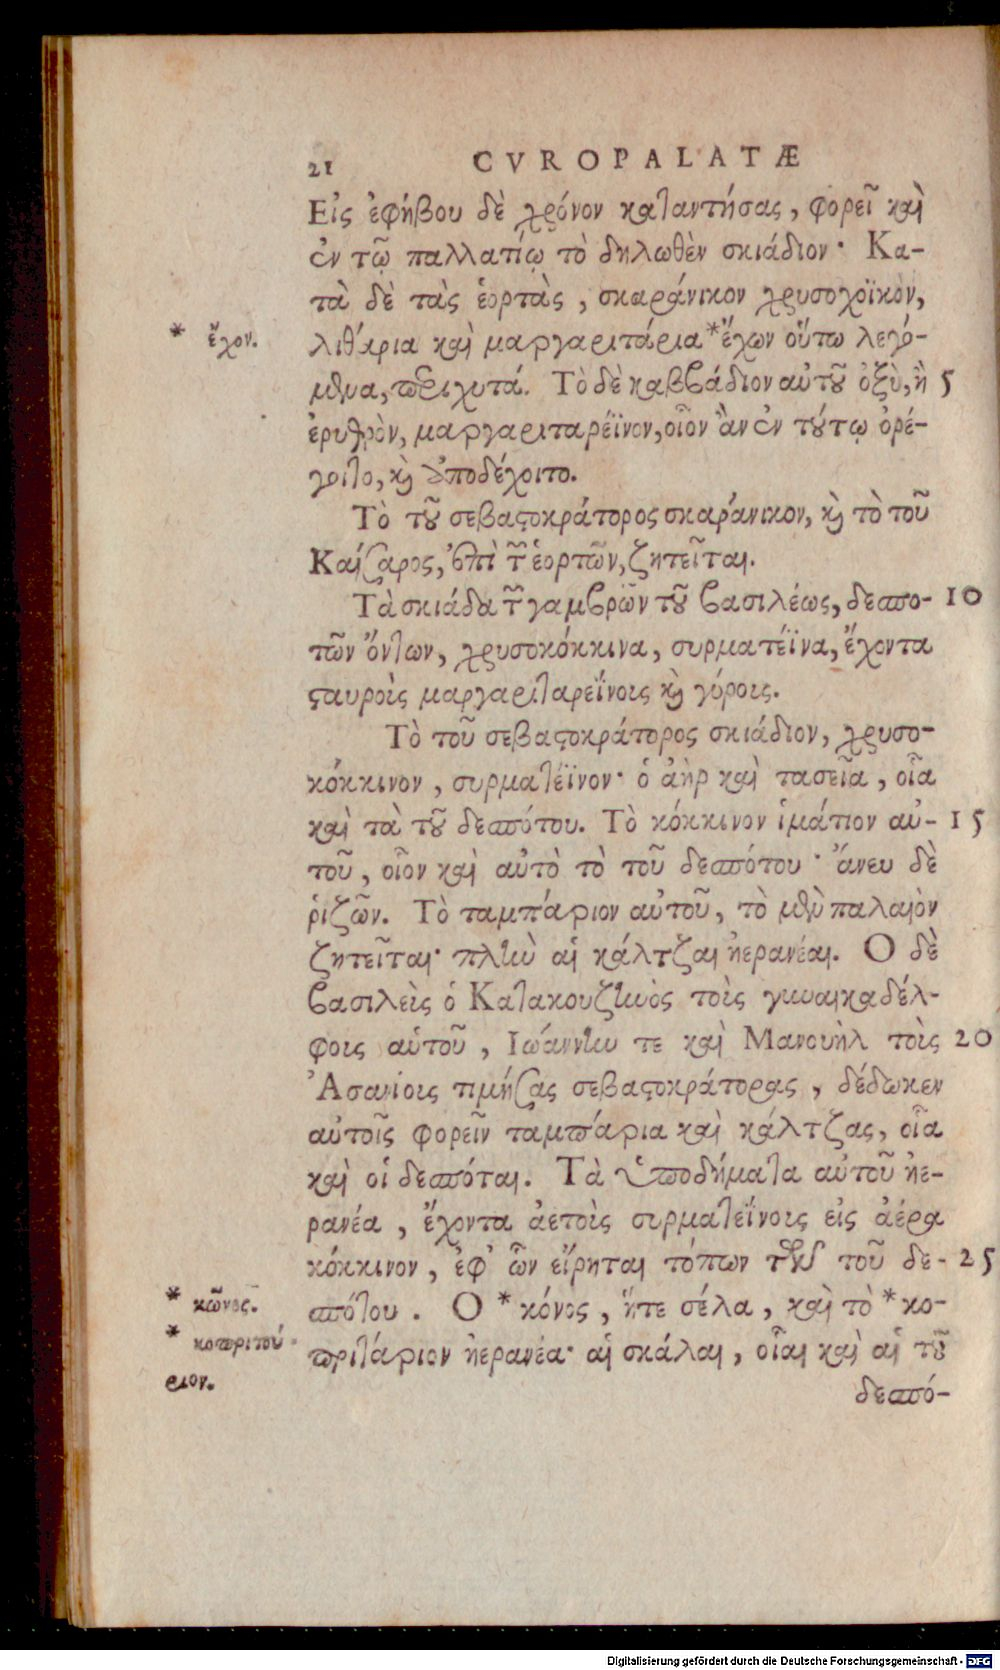 21 CVROPALATÆ
Εἰς ἐφήβου δὲ χρόνον καταντήσας, φορεῖ καὶ
ἐν τῷ παλλατίῳ τὸ δηλωθὲν σκιάδιον· Κα-
τὰ δὲ τὰς ἑορτὰς, σκαράνικον χρυσοχοϊκὸν,
* ἔχον.
λιθάρια καὶ μαργαριτάρια *ἔχων οὕτω λεγό-
μενα, περιχυτά. Τὸ δὲ καββάδιον αὐτοῦ ὀξὺ, ἢ 5
ἐρυθρὸν, μαργαριταρέϊνον, οἷον ἂν ἐν τούτῳ ὀρέ-
γοιτο, καὶ ὑποδέχοιτο.
Τὸ τοῦ σεβαστοκράτορος σκαράνικον, καὶ τὸ τοῦ
Καίσαρος, ἐπὶ τῶν ἑορτῶν, ζητεῖται.
Τὰ σκιάδα τῶν γαμβρῶν τοῦ βασιλέως, δεσπο- 10
τῶν ὄντων, χρυσοκόκκινα, συρματέϊνα, ἔχοντα
σταυροὶς μαργαριταρεΐνοις καὶ γύροις.
Τὸ τοῦ σεβαστοκράτορος σκιάδιον, χρυσο-
κόκκινον, συρματέϊνον· ὁ ἀὴρ καὶ τασεῖα, οἷα
καὶ τὰ τοῦ δεσπότου. Τὸ κόκκινον ἱμάτιον αὐ- 15
τοῦ, οἷον καὶ αὐτὸ τὸ τοῦ δεσπότου· ἄνευ δὲ
ῥιζῶν. Τὸ ταμπάριον αὐτοῦ, τὸ μὲν παλαιὸν
ζητεῖται· πλὴν αἱ κάλτζαι ἠερανέαι. Ο δὲ
βασιλεὶς ὁ Κατακουζηνὸς τοὶς γυναικαδέλ-
φοις αὑτοῦ, Ιωάννην τε καὶ Μανουὴλ τοὶς 20
Ἀσανίοις τιμήσας σεβαστοκράτορας, δέδωκεν
αὐτοῖς φορεῖν ταμπάρια καὶ κάλτζας, οἷα
καὶ οἱ δεσπόται. Τὰ ὑποδήματα αὐτοῦ ἠε-
ρανέα, ἔχοντα ἀετοὶς συρματεΐνοις εἰς ἀέρα
κόκκινον, ἐφ' ὧν εἴρηται τόπων τῶν τοῦ δε- 25
* κῶνος.
σπότου. Ο *κόνος, ἥτε σέλα, καὶ τὸ *κο-
* κοπριτού
ριον.
πριτάριον ἠερανέα· αἱ σκάλαι, οἷαι καὶ αἱ τοῦ
δεσπό-
Digitalisierung gefördert durch die Deutsche Forschungsgemeinschaft - DFG